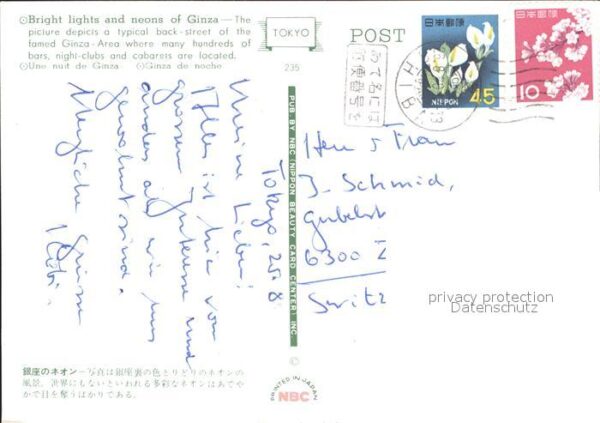 Bright lights and neons of Ginza — The
picture depicts a typical back-street of the
famed Ginza-Area where many hundreds of
bars, night-clubs and cabarets are located.
Une nuit de Ginza Ginza de noche
TOKYO
235
POST
日本郵便
NIPPON
45
日本郵便
10
あて名には
郵便番号を
HIB
PUB. BY NBC (NIPPON BEAUTY CARD CENTER) INC.
Tokyo, 25.8.
Meine Lieben!
Alles ist hier von
grossem Interesse und
anders als wir uns
gewohnt sind.
Herzliche Grüsse
Herr & Frau
J. Schmid,
6300 Z
Switz
privacy protection
Datenschutz
銀座のネオン—写真は銀座裏の色とりどりのネオンの
風景。世界にもないといわれる多彩なネオンはあでや
かで目を奪うばかりである。
©
PRINTED IN JAPAN
NBC